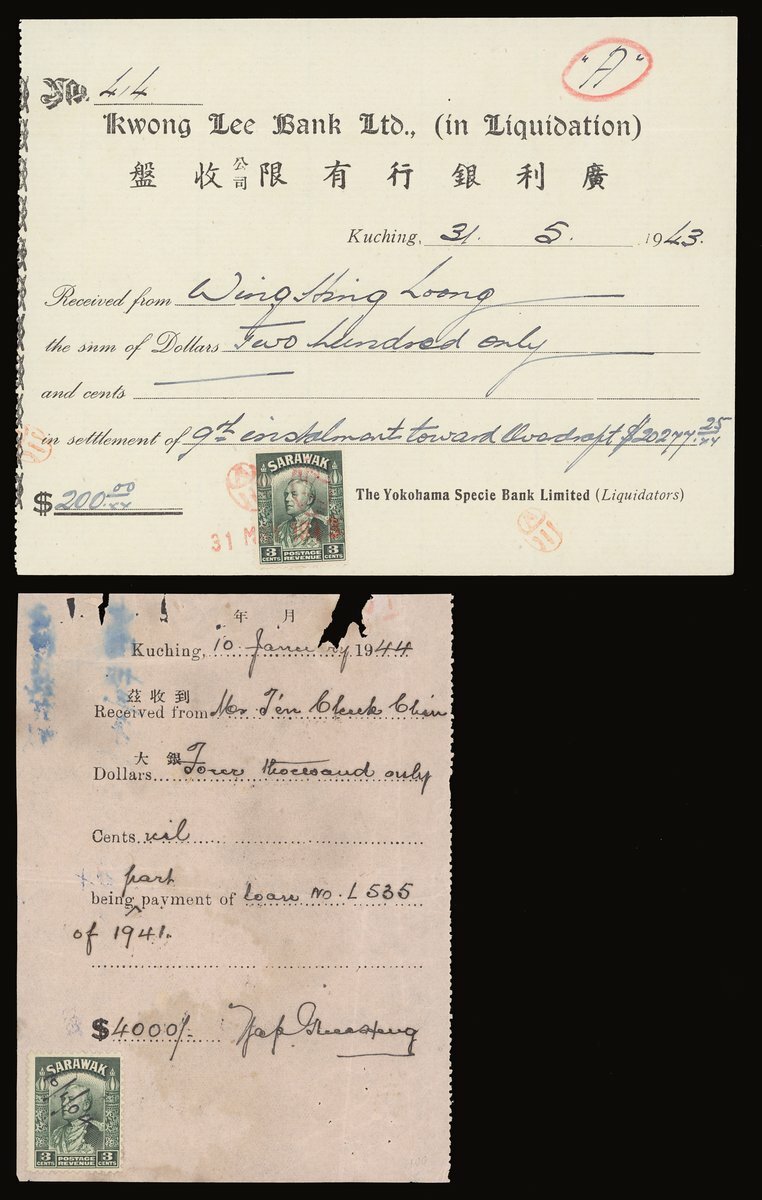 No. 44
"A"
Kwong Lee Bank Ltd., (in Liquidation)
盤 收 公司 限 有 行 銀 利 廣
Kuching, 31. 5. 1943.
Received from Wing Hing Loong
the snm of Dollars Two hundred only
and cents
in settlement of 9th instalments toward Overdraft $20277.25/xx
$ 200.00/xx
The Yokohama Specie Bank Limited (Liquidators)
31 M
SARAWAK
3 CENTS POSTAGE REVENUE 3 CENTS
年 月
Kuching, 10 January 1944
茲 收 到
Received from Mr Ten Chuk Chin
大 銀
Dollars Four thousand only
Cents nil
part
being payment of loan No. L 535
of 1941.
$4000/-
SARAWAK
3 CENTS POSTAGE REVENUE 3 CENTS